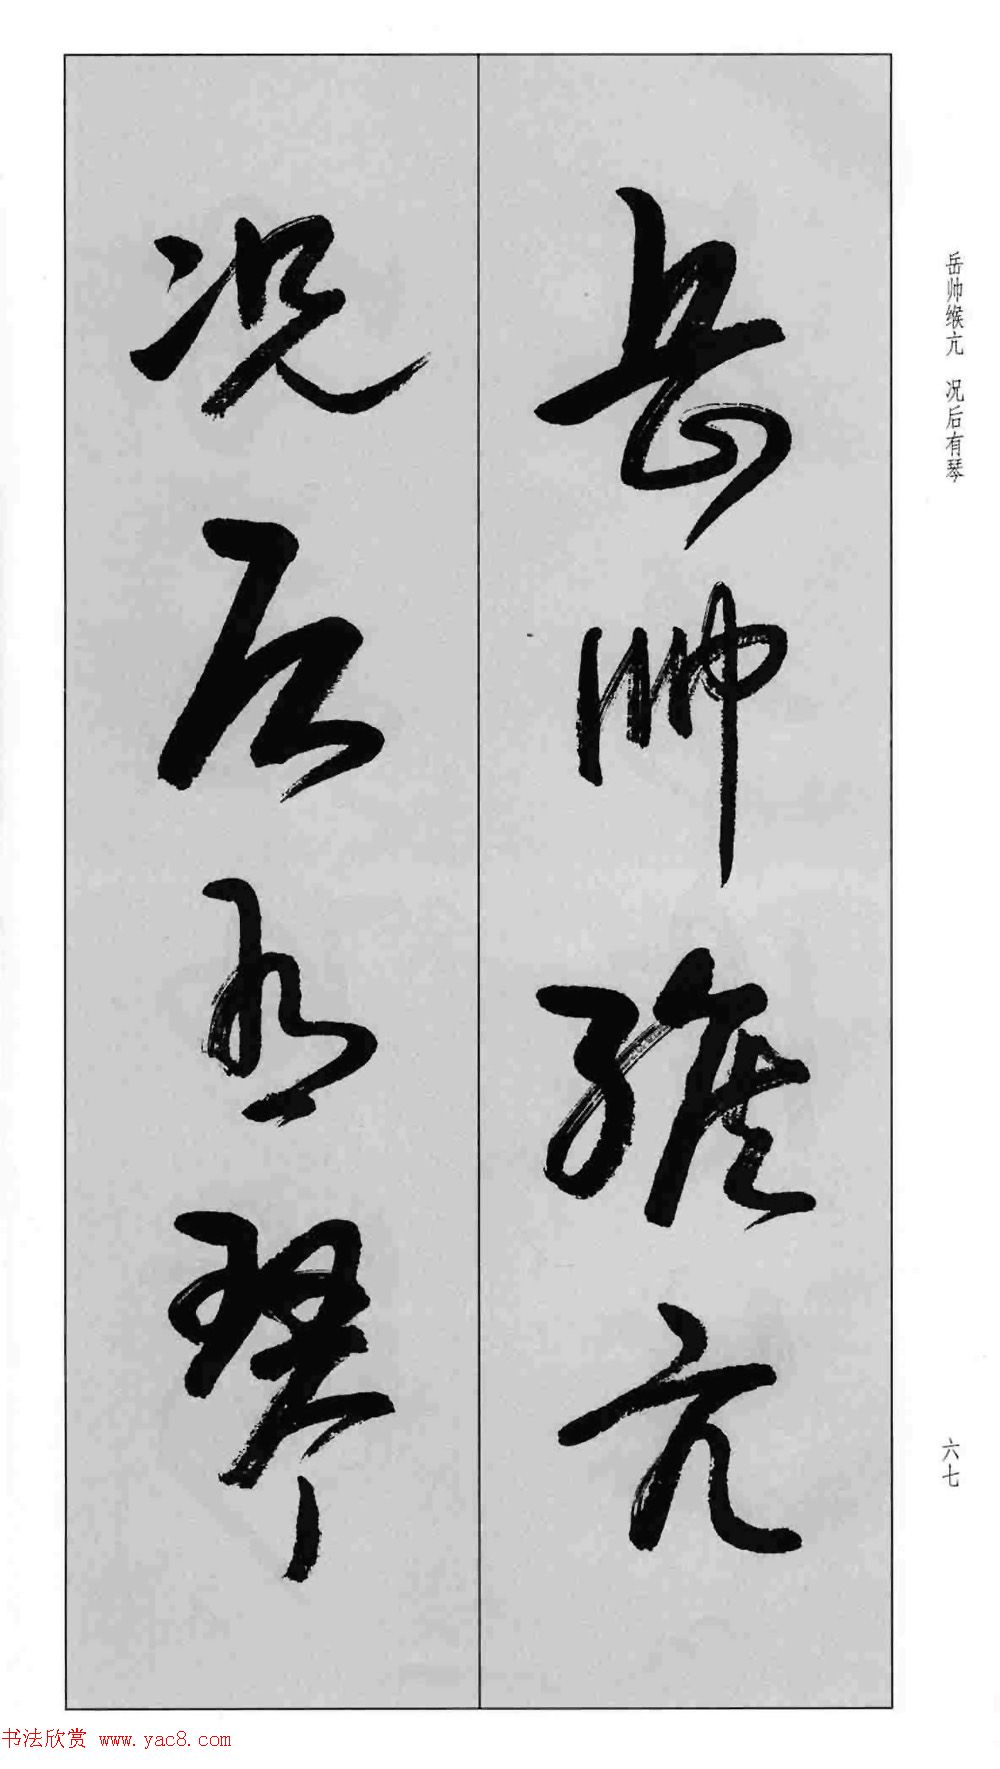 岳帅缑亢
况后有琴
岳帅缑亢 况后有琴
六七
书法欣赏 www.yac8.com